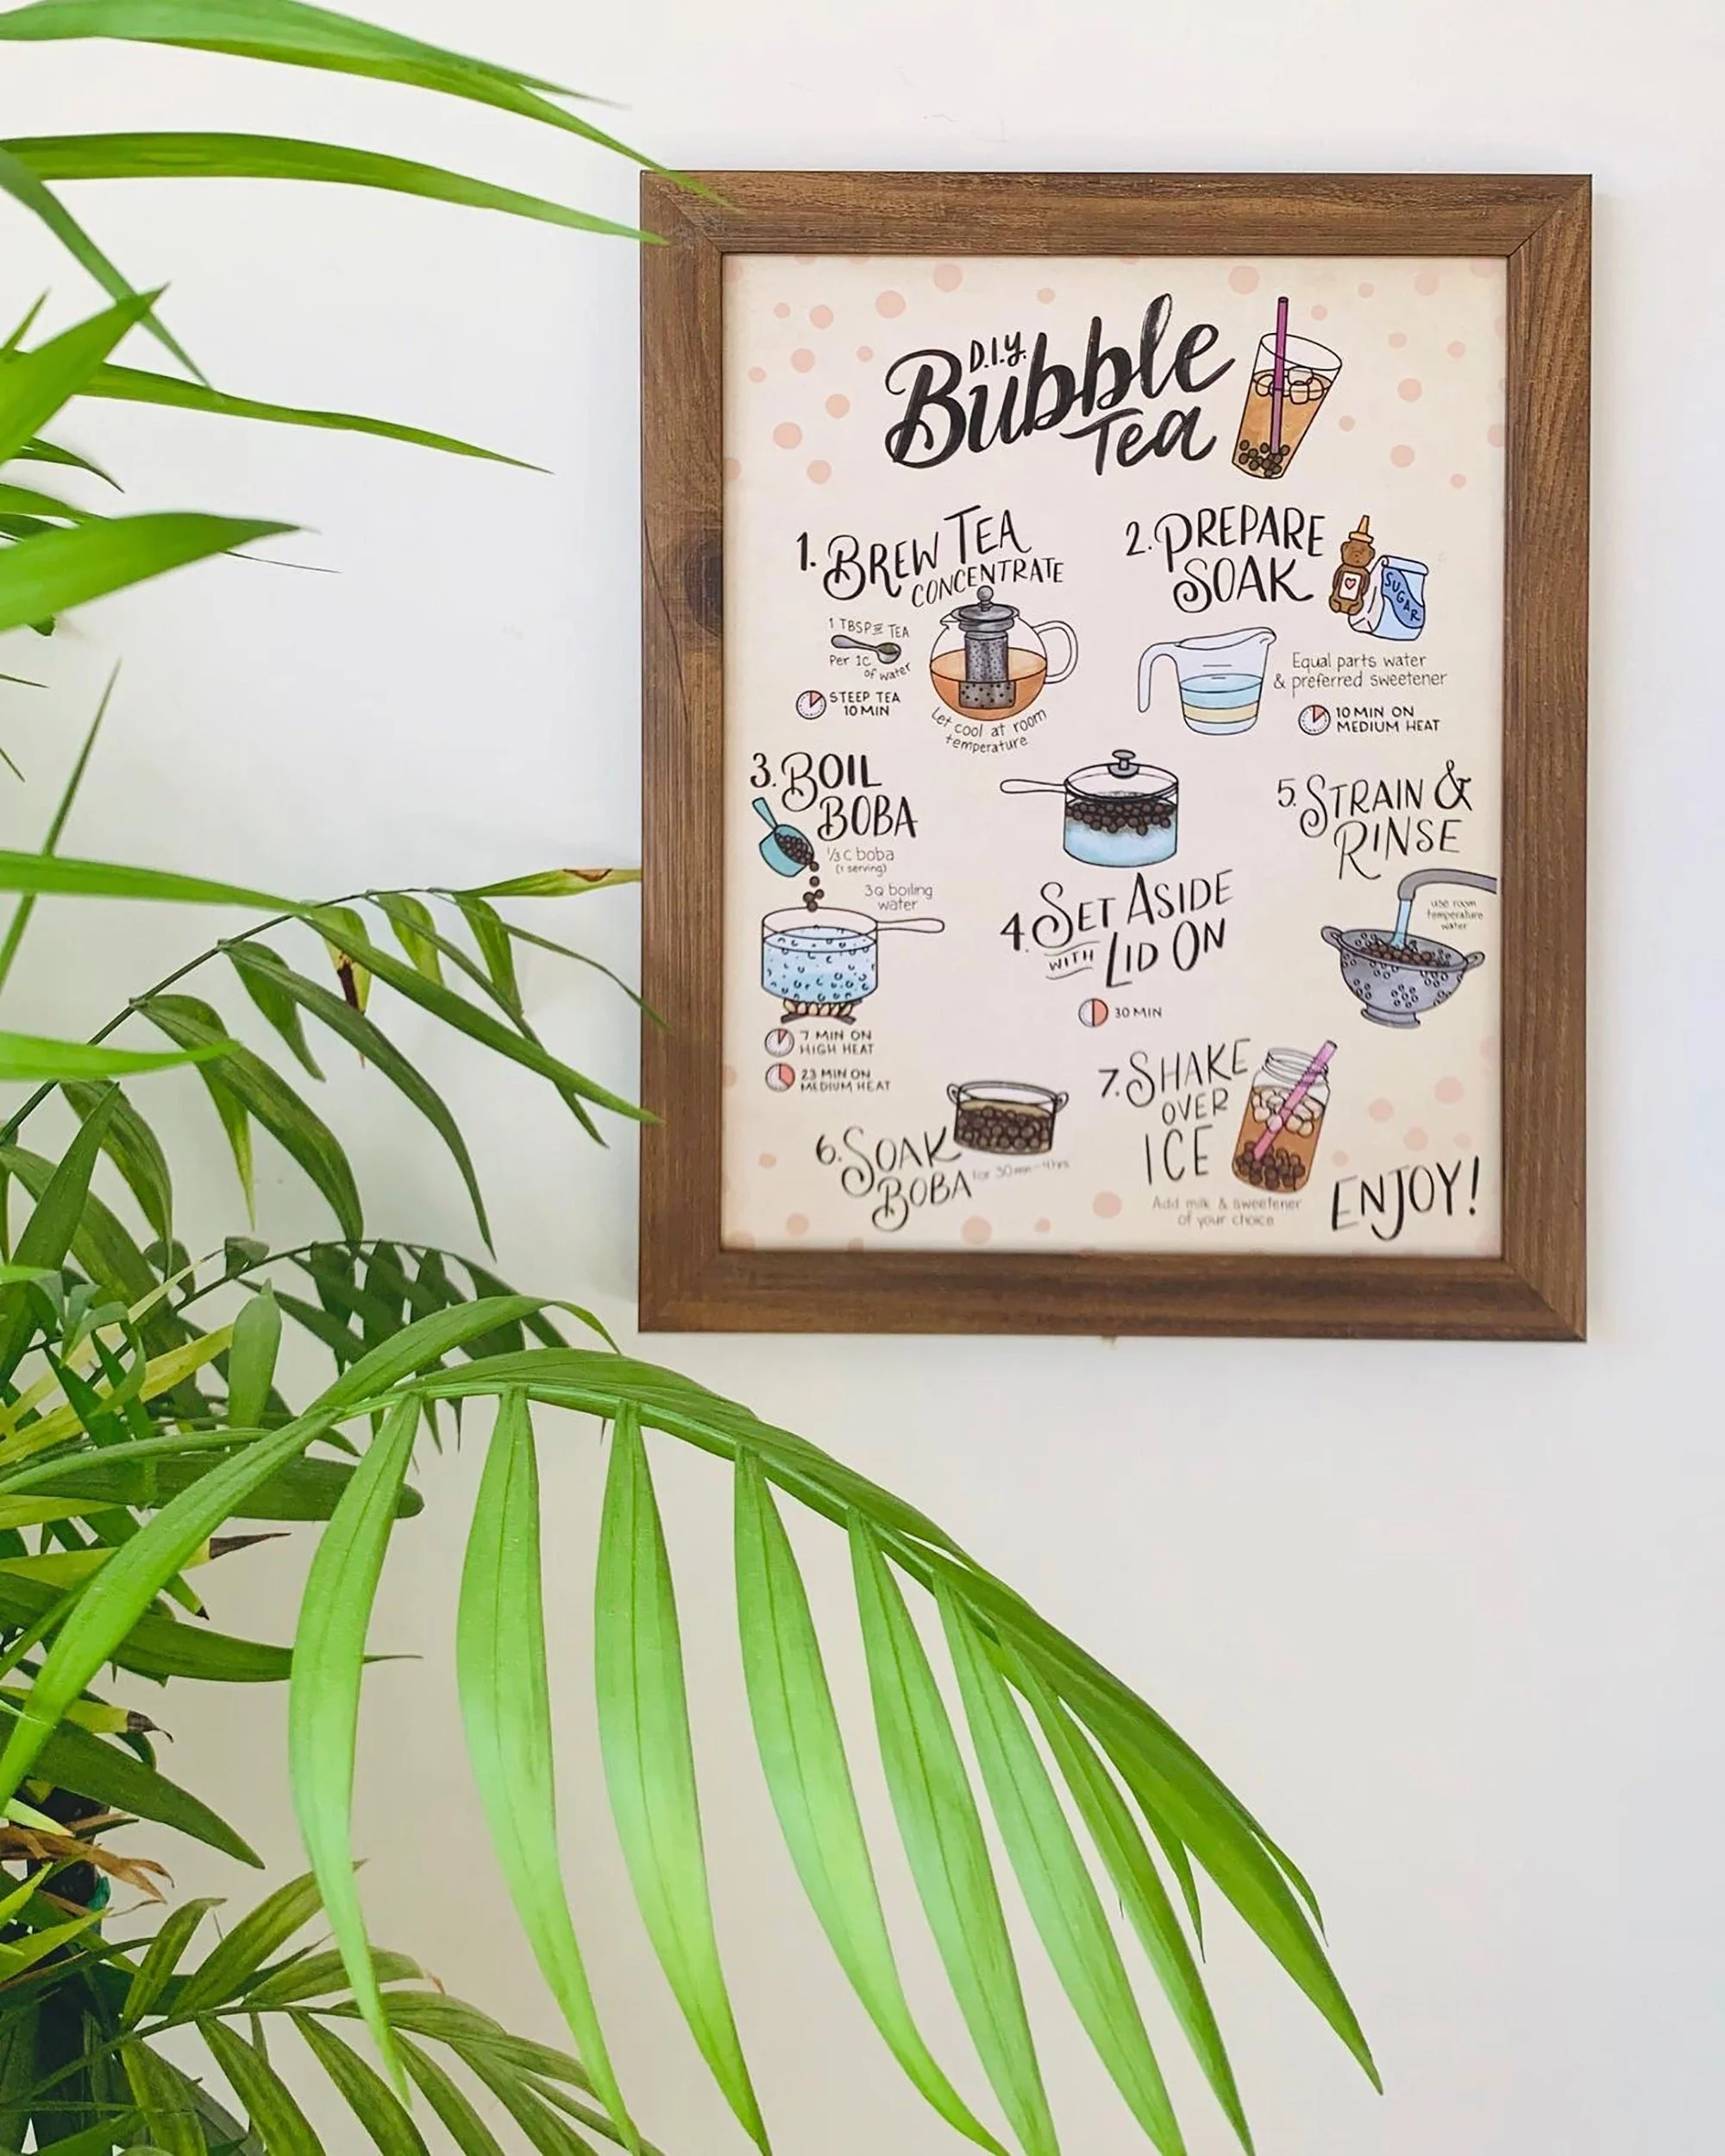 D.I.Y.
Bubble
Tea
1. BREW TEA
CONCENTRATE
1 TBSP TEA
Per 1C
of water
STEEP TEA
10 MIN
Let cool at room
temperature
2. PREPARE
SOAK
SUGAR
Equal parts water
& preferred sweetener
10 MIN ON
MEDIUM HEAT
3. BOIL
BOBA
⅓ C boba
(1 serving)
3Q boiling
water
7 MIN ON
HIGH HEAT
23 MIN ON
MEDIUM HEAT
4. SET ASIDE
WITH LID ON
30 MIN
5. STRAIN &
RINSE
use room
temperature
water
6. SOAK
BOBA
for 30 min-4hrs
7. SHAKE
OVER
ICE
Add milk & sweetener
of your choice
ENJOY!